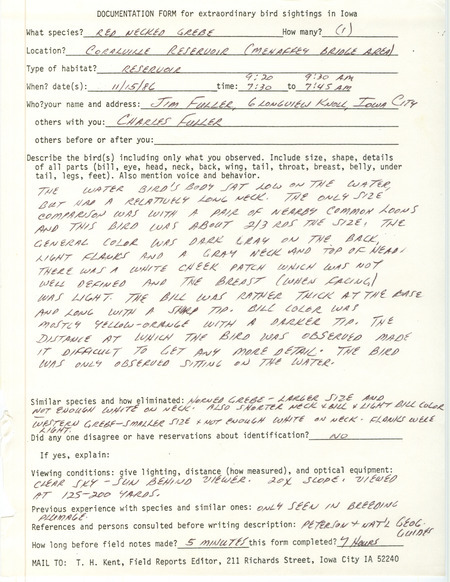 DOCUMENTATION FORM for extraordinary bird sightings in Iowa
What species? RED NECKED GREBE How many? (1)
Location? CORALVILLE RESERVOIR (MEHAFFEY BRIDGE AREA)
Type of habitat? RESERVOIR
9:20 9:30 AM
When? date(s): 11/15/86 time: 7:30 to 7:45 AM
Who?your name and address: JIM FULLER, 6 LONGVIEW KNOLL, IOWA CITY
others with you: CHARLES FULLER
others before or after you:
Describe the bird(s) including only what you observed. Include size, shape, details
of all parts (bill, eye, head, neck, back, wing, tail, throat, breast, belly, under
tail, legs, feet). Also mention voice and behavior.
THE WATER BIRD'S BODY SAT LOW ON THE WATER,
BUT HAD A RELATIVELY LONG NECK. THE ONLY SIZE
COMPARISON WAS WITH A PAIR OF NEARBY COMMON LOONS
AND THIS BIRD WAS ABOUT 2/3 RDS THE SIZE. THE
GENERAL COLOR WAS DARK GRAY ON THE BACK,
LIGHT FLANKS AND A GRAY NECK AND TOP OF HEAD.
THERE WAS A WHITE CHEEK PATCH WHICH WAS NOT
WELL DEFINED AND THE BREAST (WHEN FACING)
WAS LIGHT. THE BILL WAS RATHER THICK AT THE BASE
AND LONG WITH A SHARP TIP. BILL COLOR WAS
MOSTLY YELLOW-ORANGE WITH A DARKER TIP. THE
DISTANCE AT WHICH THE BIRD WAS OBSERVED MADE
IT DIFFICULT TO GET ANY MORE DETAIL. THE BIRD
WAS ONLY OBSERVED SITTING ON THE WATER.
Similar species and how eliminated: HORNED GREBE - LARGER SIZE AND
NOT ENOUGH WHITE ON NECK. ALSO SHORTER NECK & BILL & LIGHT BILL COLOR
WESTERN GREBE-SMALLER SIZE & NOT ENOUGH WHITE ON NECK. FLANKS WERE
LIGHT.
Did any one disagree or have reservations about identification? NO
If yes, explain:
Viewing conditions: give lighting, distance (how measured), and optical equipment:
CLEAR SKY - SUN BEHIND VIEWER. 20X SCOPE. VIEWED
AT 125-200 YARDS.
Previous experience with species and similar ones: ONLY SEEN IN BREEDING
PLUMAGE.
References and persons consulted before writing description: PETERSON & NAT'L GEOG.
GUIDES
How long before field notes made? 5 MINUTES this form completed? 7 HOURS
MAIL TO: T. H. Kent, Field Reports Editor, 211 Richards Street, Iowa City IA 52240